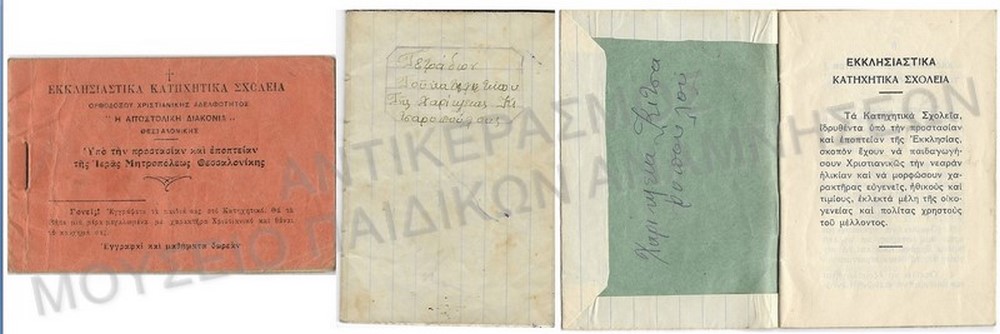 ΕΚΚΛΗΣΙΑΣΤΙΚΑ ΚΑΤΗΧΗΤΙΚΑ ΣΧΟΛΕΙΑ
ΟΡΘΟΔΟΞΟΥ ΧΡΙΣΤΙΑΝΙΚΗΣ ΑΔΕΛΦΟΤΗΤΟΣ
"Η ΑΠΟΣΤΟΛΙΚΗ ΔΙΑΚΟΝΙΑ"
ΘΕΣΣΑΛΟΝΙΚΗΣ
Ὑπὸ τὴν προστασίαν καὶ ἐποπτείαν
τῆς Ἱερᾶς Μητροπόλεως Θεσσαλονίκης
Γονεῖς! Ἐγγράψατε τὰ παιδιά σας στὰ Κατηχητικά. Θὰ τὰ
μὲ χαρακτῆρα Χριστιανικὸ καὶ θἆναι
Ἐγγραφαὶ καὶ μαθήματα δωρεάν
Τετράδιον
Τοῦ κατηχητικοῦ
Της Χαρικλείας Κι
Χαρίκλεια Κίτσα
ΕΚΚΛΗΣΙΑΣΤΙΚΑ
ΚΑΤΗΧΗΤΙΚΑ ΣΧΟΛΕΙΑ
Τὰ Κατηχητικὰ Σχολεῖα,
ἱδρυθέντα ὑπὸ τὴν προστασίαν
καὶ ἐποπτείαν τῆς Ἐκκλησίας,
σκοπὸν ἔχουν νὰ παιδαγωγή-
σουν Χριστιανικῶς τὴν νεαρὰν
ἡλικίαν καὶ νὰ μορφώσουν χα-
ρακτῆρας εὐγενεῖς, ἠθικοὺς καὶ
τιμίους, ἐκλεκτὰ μέλη τῆς οἰκο-
γενείας καὶ πολίτας χρηστοὺς
τοῦ μέλλοντος.
ΑΝΤΙΚΕΡΑΣΜΑ
ΜΟΥΣΕΙΟ ΠΑΙΔΙΚΩΝ ΑΝΑΜΝΗΣΕΩΝ